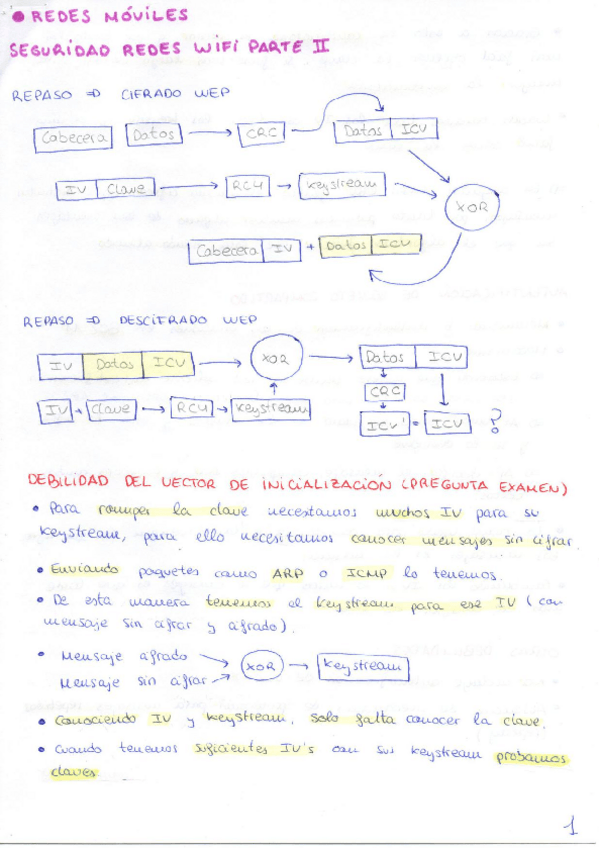 ● REDES MÓVILES
SEGURIDAD REDES WIFI PARTE II
REPASO => CIFRADO WEP
Cabecera Datos → CRC Datos ICV
IV Clave → RC4 → Keystream
XOR
Cabecera IV + Datos ICV
REPASO => DESCIFRADO WEP
IV Datos ICV → XOR → Datos ICV
CRC
IV + Clave → RC4 → Keystream
ICV' = ICV ?
DEBILIDAD DEL VECTOR DE INICIALIZACIÓN (PREGUNTA EXAMEN)
• Para romper la clave necesitamos muchos IV para su
Keystream, para ello necesitamos conocer mensajes sin cifrar.
• Enviando paquetes como ARP o ICMP lo tenemos.
• De esta manera tenemos el Keystream para ese IV (con
mensaje sin cifrar y cifrado).
• Mensaje cifrado
XOR → Keystream
Mensaje sin cifrar
• Conociendo IV y Keystream, solo falta conocer la clave.
• Cuando tenemos suficientes IV's con sus keystream probamos
claves
1